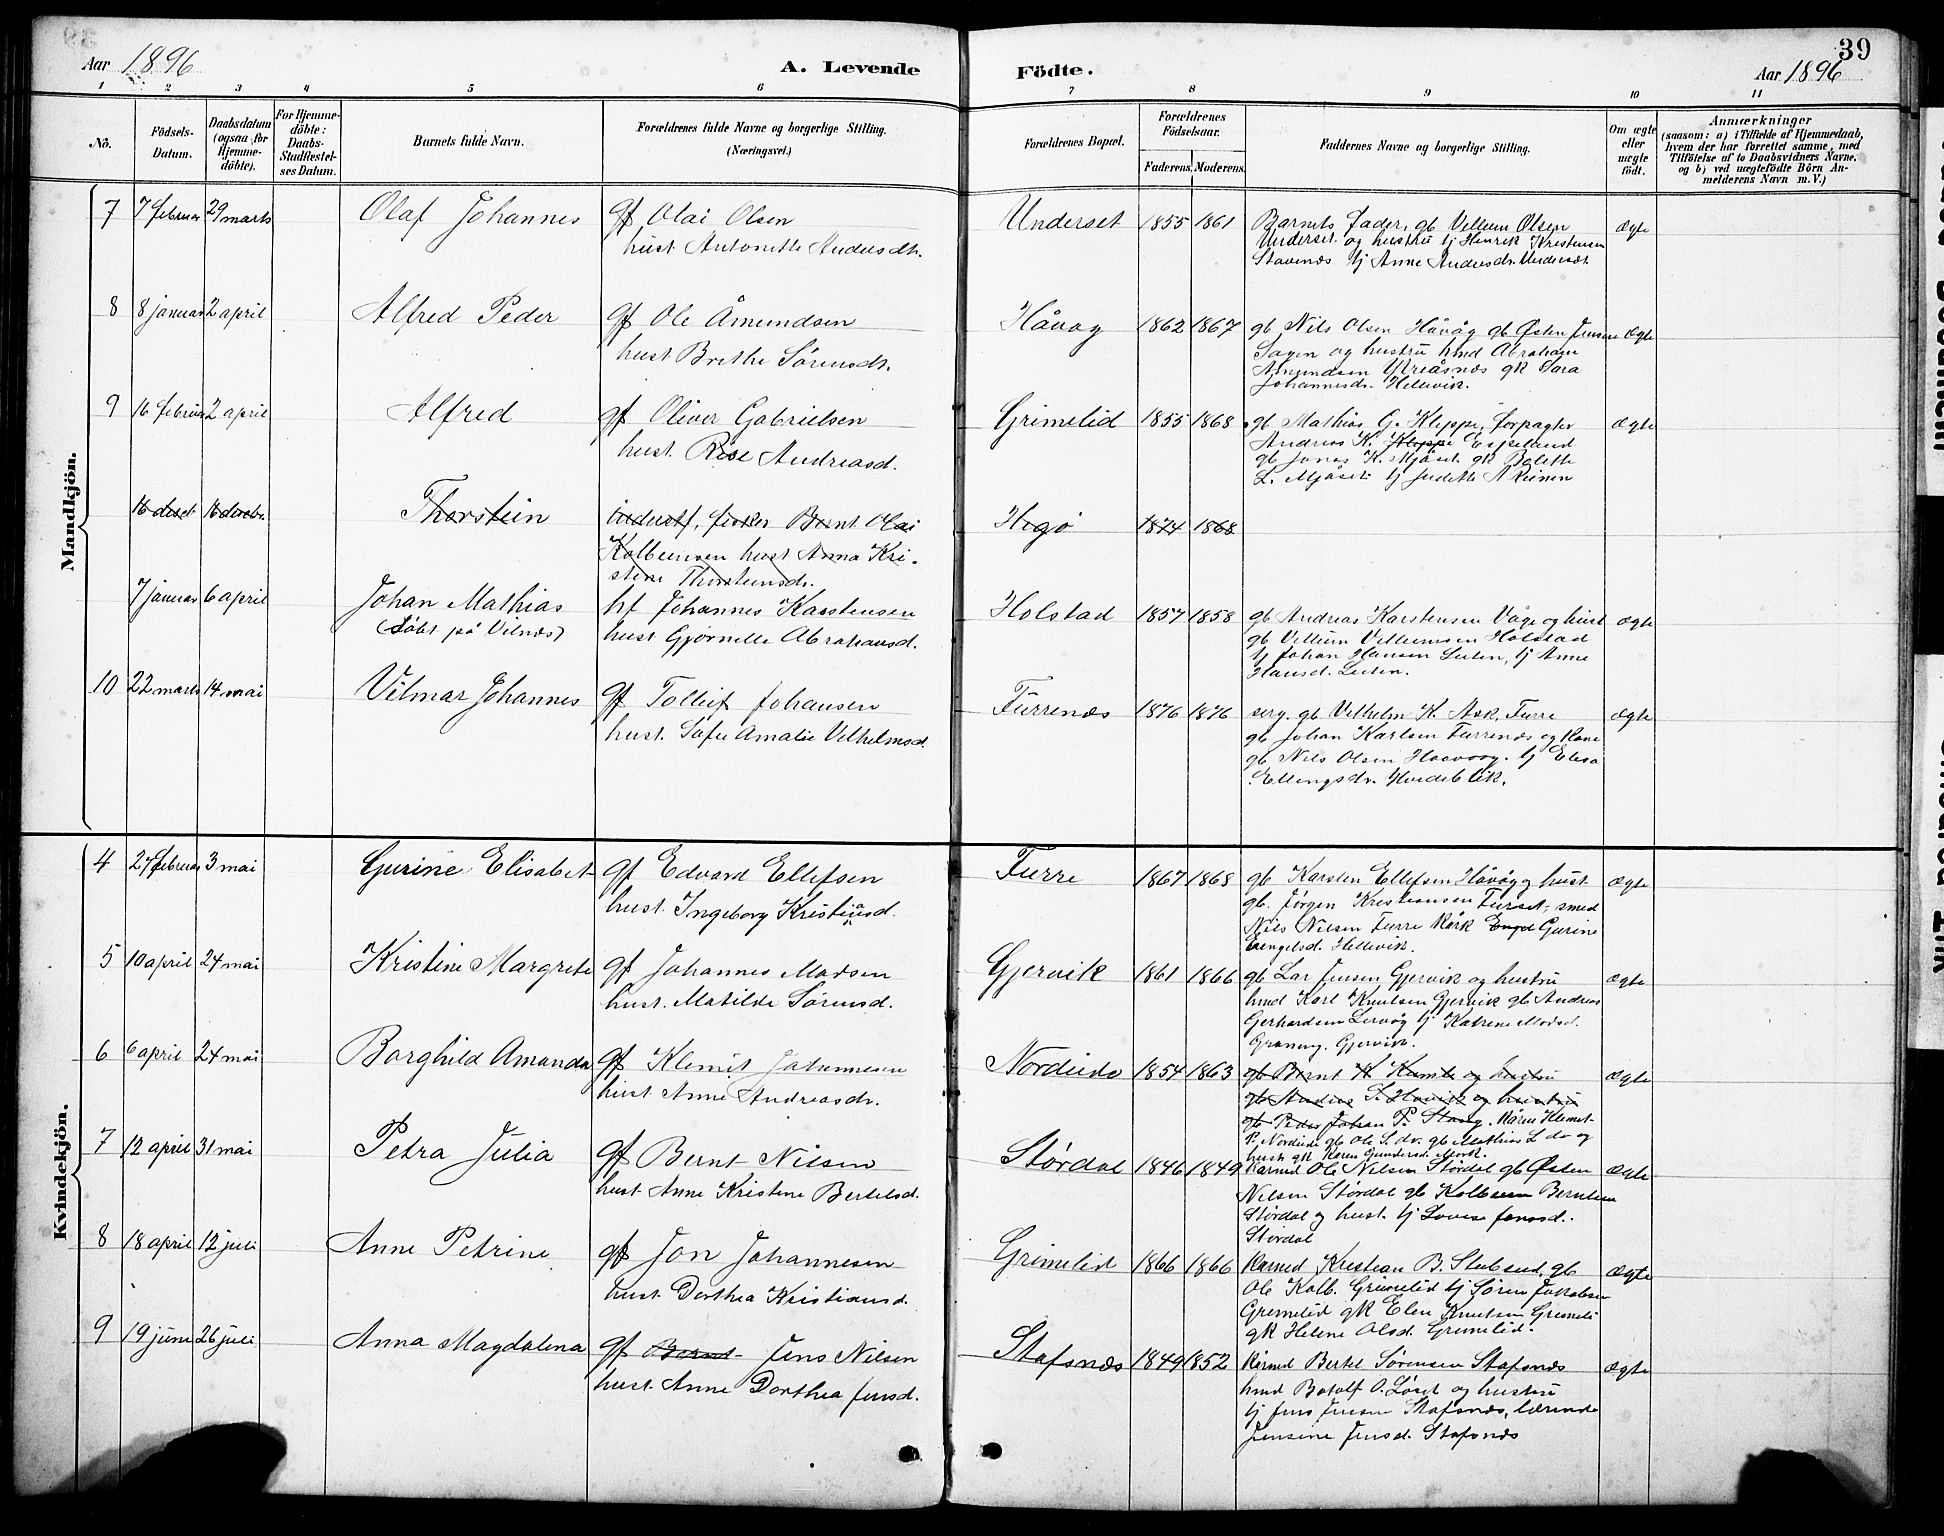 Aar 1896
A. Levende Födte.
39
Aar 1896
1 2 3 4 5 6 7 8 9 10 11
No.
Födsels-Datum.
Daabsdatum (ogsaa for Hjemme-döbte).
For Hjemme-döbte: Daabs-Stadfæstel-ses Datum.
Barnets fulde Navn.
Forældrenes fulde Navne og borgerlige Stilling. (Næringsvei.)
Forældrenes Bopæl.
Forældrenes Födselsaar.
Faderens. Moderens.
Faddernes Navne og borgerlige Stilling.
Om ægte eller uægte födt.
Anmærkninger
(saasom: a) i Tilfælde af Hjemmedaab,
hvem der har forrettet samme, med
Tilföielse af to Daabsvidners Navne,
og b) ved uægtefödte Börn An-
melderens Navn m. V.)
Mandkjön.
7 7 februar 29 marts Olaf Johannes gf Olai Olsen
hust. Antonette Andersdtr.
Underset 1855 1861 Barnets fader, gb Vellum Olsen
Underset og hustru tj Henrik Kristensen
Stavenæs tj Anne Andersdr. Underset
ægte
8 8 januar 2 april Alfred Peder gf Ole Åmundsen
hust Brithe Sørensdr.
Håvåg 1862 1867 gb Nils Olsen Håvåg gb Østen Jensen
Sagen og hustru hmd Abraham
Amundsen Ytreåsnæs gk Sara
Johannesdr. Hellevik.
ægte
9 16 februar 2 april Alfred gf Oliver Gabrielsen
hust. Andreasd.
Grimelid 1855 1868 gb Mathias G. Kleppe, forpagter
Andreas K. Kleppe Espeland
gb Jonas K. Mjåset gk Bolette
L. Mjåset tj Judette A
ægte
16 16 Thorstein fisker Bernt Olai
Kolbeinsen hust Anna Kri-
stine Thorsteinsdr.
Hegø 1874 1868
7 januar 6 april Johan Mathias
(døbt på Vilnæs)
hf Johannes Karstensen
hust Gjørnelle Abrahamsd.
Holstad 1857 1858 gb Andreas Karstensen Våge og hust
gb Vellum Vellumsen Holstad
tj Johan Hansen Leiten, tj Anne
Hansd. Leiten.
ægte
10 22 marts 14 mai Vilmar Johannes gf Tollief Johansen
hust. Sofie Amalie Velhelmsd.
Furrenæs 1876 1876 serg. gb Velhelm K. Ask, Furre
gb Johan Karlsen Furrenæs og Kone
gb Nils Olsen Haavaag. tj Elesa
Ellingsdr. Hvideblik.
ægte
Kvindekjön.
4 27 februar 3 mai Gurine Elisabet gf Edvard Ellefsen
hust. Ingeborg Kristiansd.
Furre 1867 1868 gb Karsten Ellefsen Håvåg og hust
gb. Jørgen Kristiansen Furset, smed
Nils Nilsen Furre Gurine
Engelsd. Hellevik.
ægte
5 10 april 24 mai Kristine Margrete gf Johannes Madsen
hust. Matilde Sørensd.
Gjervik 1861 1866 gb Lar Jensen Gjervik og hustru
hmd Karl Knutsen Gjervik gb Andreas
Gerhardsen Lervåg tj Katrine Madsd.
Gjervik.
ægte
6 6 april 24 mai Borghild Amanda gf Klemit Johannesen
hust Anne Andreasdr.
Nordeide 1854 1863 gb Bernt K og hustru
gb Andreas S. og hustru
gb Peder Johan P. Stang. Måren Klemet
P. Nordeide gb Ole S. do. gb Mathias L do og
hust gk Karen Gundersd.
ægte
7 12 april 31 mai Petra Julia gf Bernt Nilsen
hust. Anne Kristine Bertelsd.
Størdal 1846 1849 kårmd Ole Nilsen Størdal gb Østen
Nilsen Størdal gb Kolbein Berntsen
Størdal og hust. tj Lovise Jensd.
Størdal
ægte
8 18 april 12 juli Anne Petrine gf Jon Johannesen
hust Dorthea Kristiansd.
Grimelid 1866 1866 kårmd Kristian B. Stubseid, gb
Ole Kolb. Grimelid tj Søren Jakobsen
Gremelid gk Elen Knutsen Gremeli
gk Helene Olsd. Grimelid.
ægte
9 19 juni 26 juli Anna Magdalena gf Bernt Jens Nilsen
hust. Anne Dorthea Jensd.
Stafsnæs 1849 1852 kårmd Bertel Sørensen Stafsnæs
hmd Botolf O. Løset og hustru
tj Jens Jensen Stafsnæs, lærerinde
Jensine Jensd. Stafsnæs
ægte